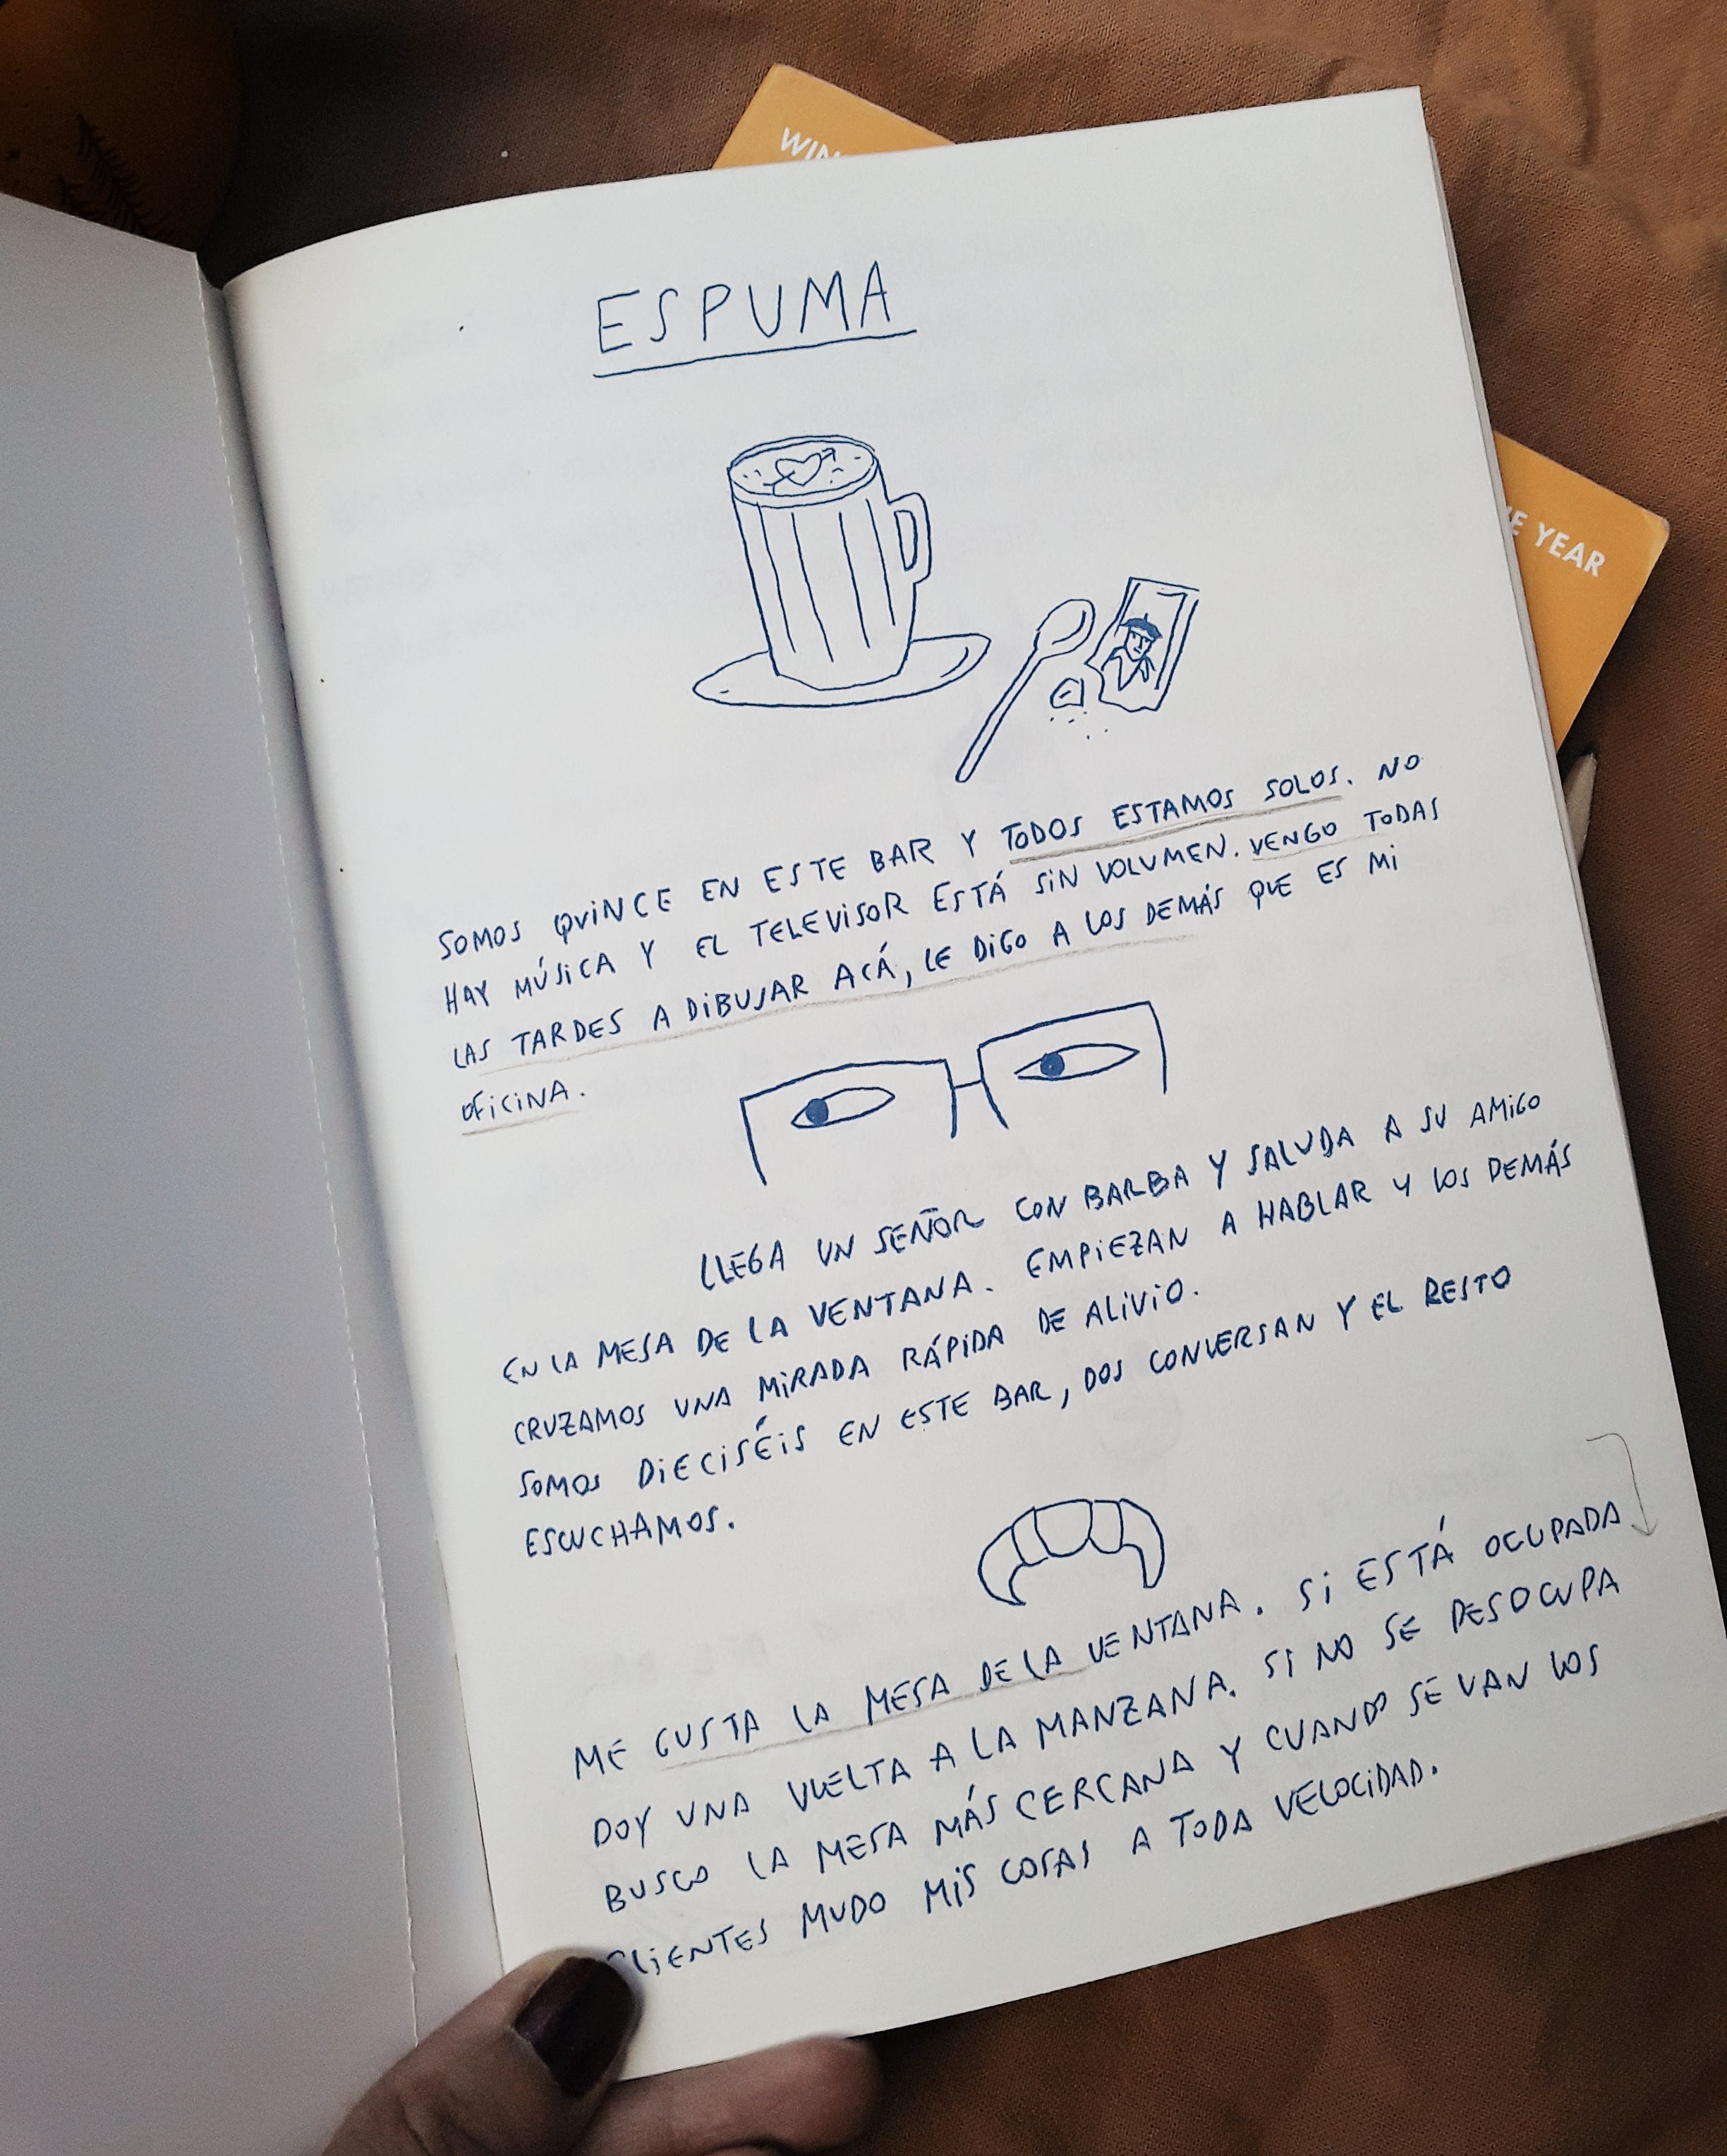 WIN
ESPUMA
E YEAR
SOMOS QUINCE EN ESTE BAR Y TODOS ESTAMOS SOLOS. NO
HAY MÚSICA Y EL TELEVISOR ESTÁ SIN VOLUMEN. VENGO TODAS
LAS TARDES A DIBUJAR ACÁ, LE DIGO A LOS DEMÁS QUE ES MI
OFICINA.
LLEGA UN SEÑOR CON BARBA Y SALUDA A SU AMIGO
EN LA MESA DE LA VENTANA. EMPIEZAN A HABLAR Y LOS DEMÁS
CRUZAMOS UNA MIRADA RÁPIDA DE ALIVIO.
SOMOS DIECISÉIS EN ESTE BAR, DOS CONVERSAN Y EL RESTO
ESCUCHAMOS.
ME GUSTA LA MESA DE LA VENTANA. SI ESTÁ OCUPADA
DOY UNA VUELTA A LA MANZANA. SI NO SE DESOCUPA
BUSCO LA MESA MÁS CERCANA Y CUANDO SE VAN LOS
CLIENTES MUDO MIS COSAS A TODA VELOCIDAD.